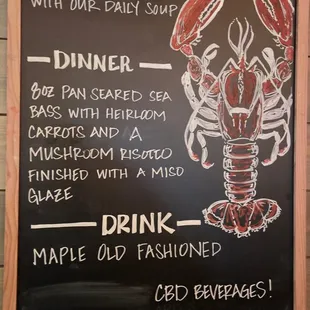 WITH OUR DAILY SOUP
DINNER
8OZ PAN SEARED SEA
BASS WITH HEIRLOOM
CARROTS AND A
MUSHROOM RISOTTO
FINISHED WITH A MISO
GLAZE
DRINK
MAPLE OLD FASHIONED
CBD BEVERAGES!